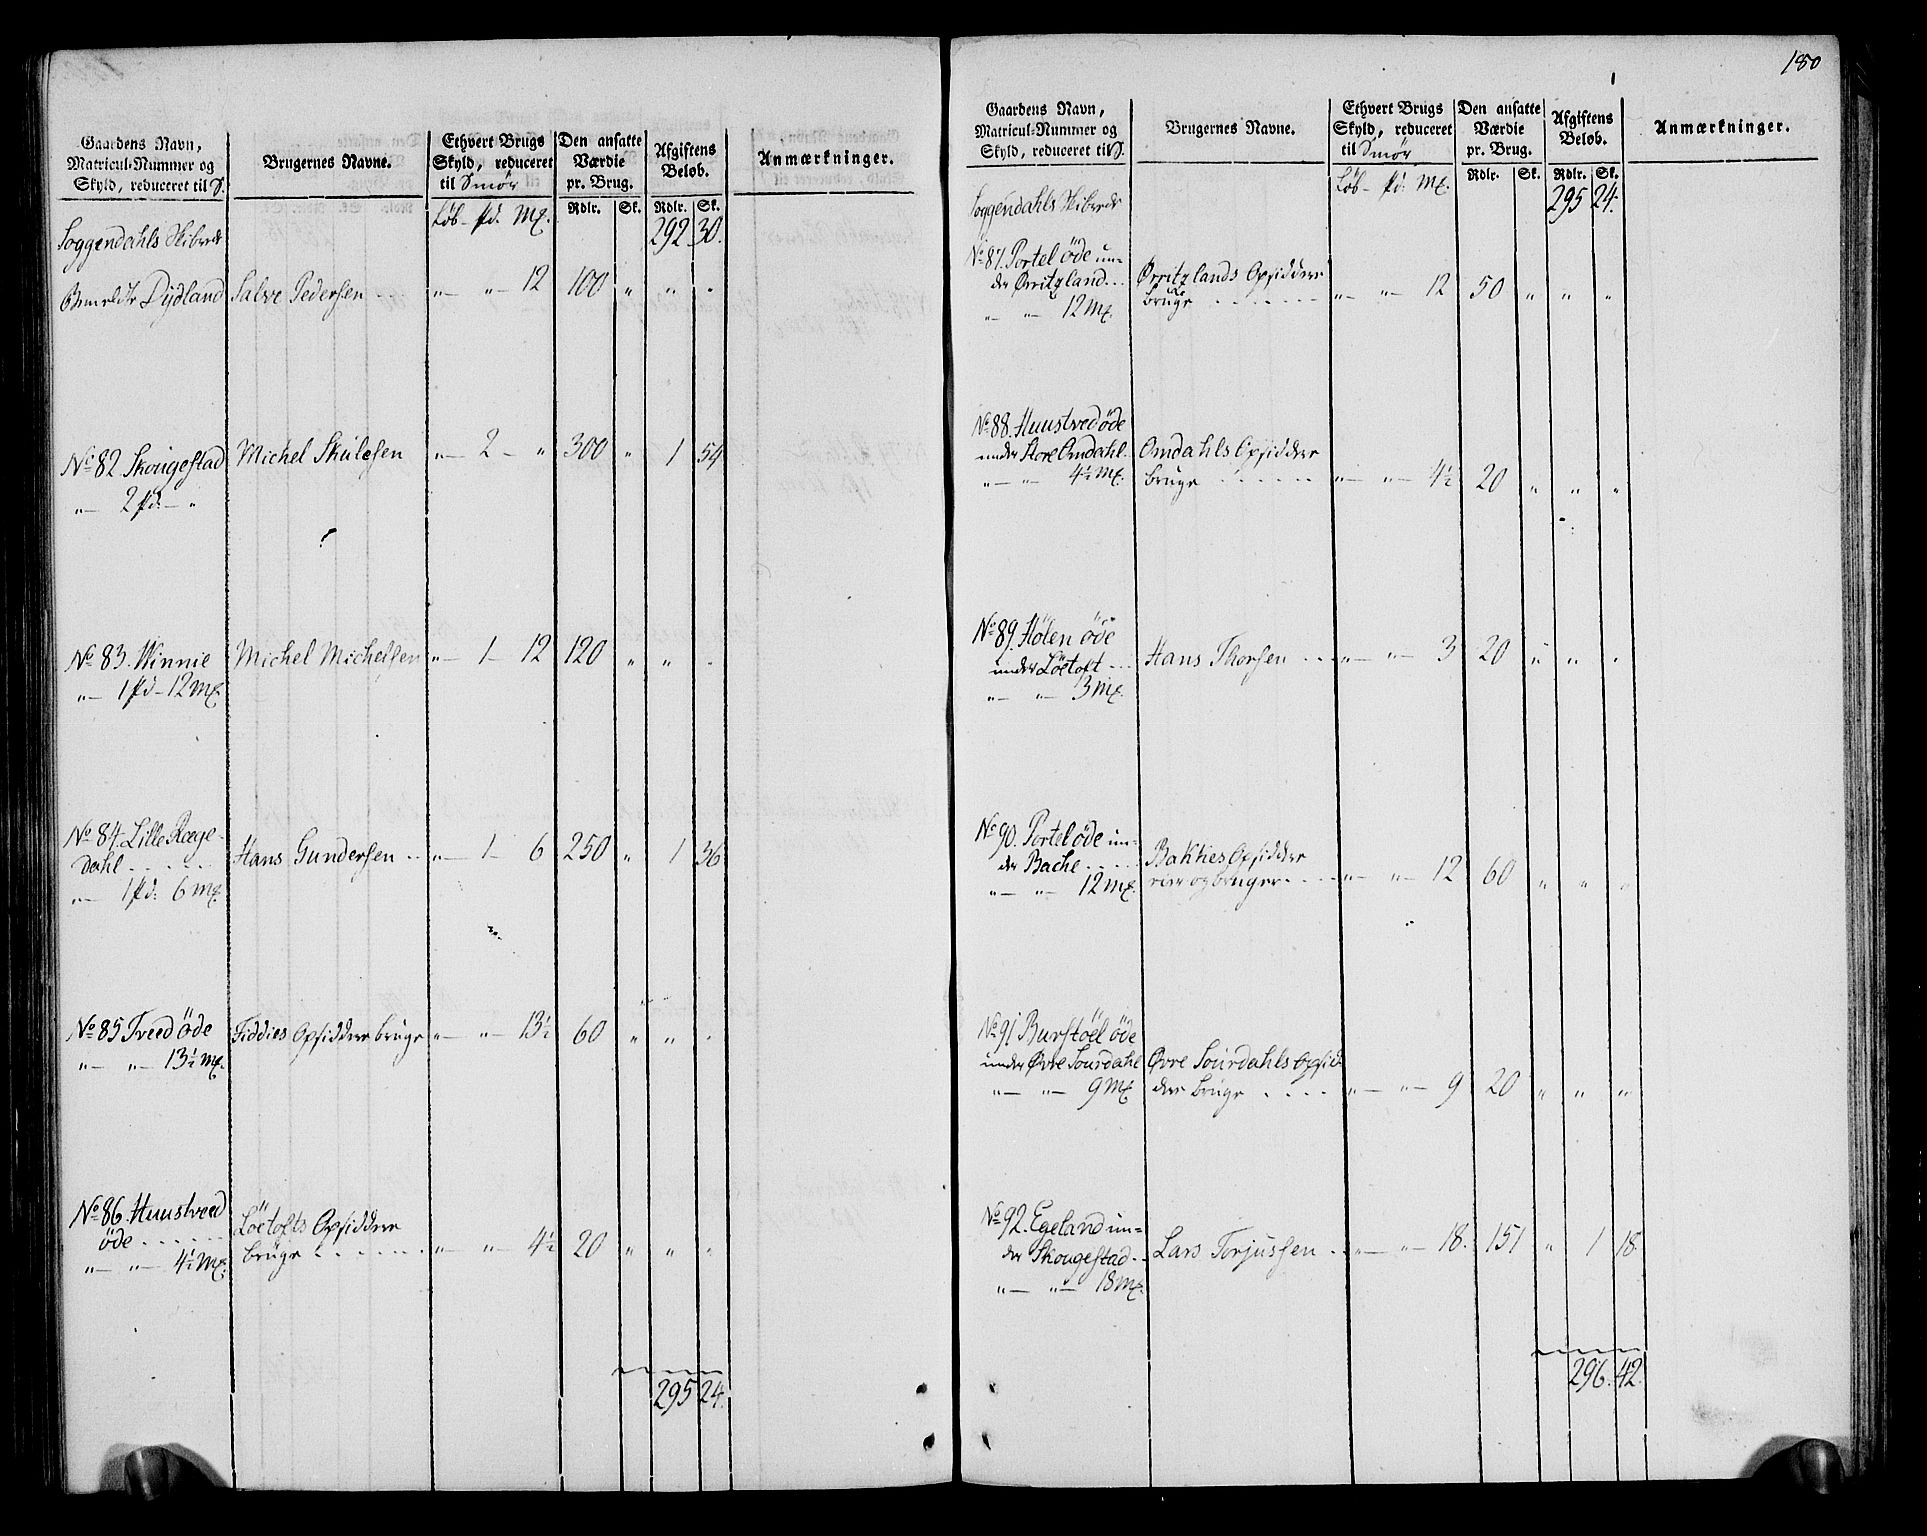 Gaardens Navn,
Matricul-Nummer og
Skyld, reduceret til S.
Brugernes Navne.
Ethvert Brugs
Skyld, reduceret
til Smör
Den ansatte
Værdie
pr. Brug.
Afgiftens
Beløb.
Anmærkninger.
Rdlr. Sk. Rdlr. Sk.
Löb - Pd: Mk.
Soggendahls Skibrede 292 30.
Dydland Salve Pedersen „ — „ — 12 100 „ „ „
No 82 Skougestad Michel Skulesen „ — 2 — „ 300 „ 1 54
„ — 2 Pd: — „
No 83. Winnie Michel Michelsen „ — 1 — 12 120 „ „ „
„ — 1 Pd — 12 Mk.
No 84. Lille Ræge-
dahl . . . . . Hans Gundersen . . „ — 1 — 6 250 „ 1 36
„ — 1 Pd: 6 Mk.
No 85 Tveed öde Fiddies Opsiddere bruge „ — „ — 13½ 60 „ „ „
„ — „ — 13½ Mk.
No 86. Huustveed Löetofts Opsiddere
öde . . . . . . bruge . . . . . . „ — „ — 4½ 20 „ „ „
„ — „ — 4½ Mk.
295 24.
180
Gaardens Navn,
Matricul-Nummer og
Skyld, reduceret til S.
Brugernes Navne.
Ethvert Brugs
Skyld, reduceret
til Smör
Den ansatte
Værdie
pr. Brug.
Afgiftens
Beløb.
Anmærkninger.
Rdlr. Sk. Rdlr. Sk.
Löb - Pd: Mk.
Soggendahls Skibrede 295 24.
No 87. Portel öde un-
der Örritzland . . . Örritzlands Opsiddere
„ — „ — 12 Mk. bruge . . . . . . „ — „ — 12 50 „ „ „
No 88. Huustved öde
under Store Omdahl. Omdahls Opsiddere
„ — „ — 4½ Mk. bruge . . . . . . „ — „ — 4½ 20 „ „ „
No 89. Hölen öde
under Löetoft . . . Hans Thorsen . . . „ — „ — 3 20 „ „ „
„ — „ — 3 Mk.
No 90. Portel öde un-
der Bache . . . . Bakkies Opsidder
„ — „ — 12 Mk. eier og bruger . . . . „ — „ — 12 60 „ „ „
No 91 Burstöel öde
under Øvre Sourdahl Øvre Sourdahls Opsid-
„ — „ — 9 Mk dere bruge . . . . „ — „ — 9 20 „ „ „
No 92. Egeland un-
der Skougestad . . Lars Torjussen . . „ — „ — 18. 151 „ 1 18.
„ — „ — 18 Mk.
296. 42.